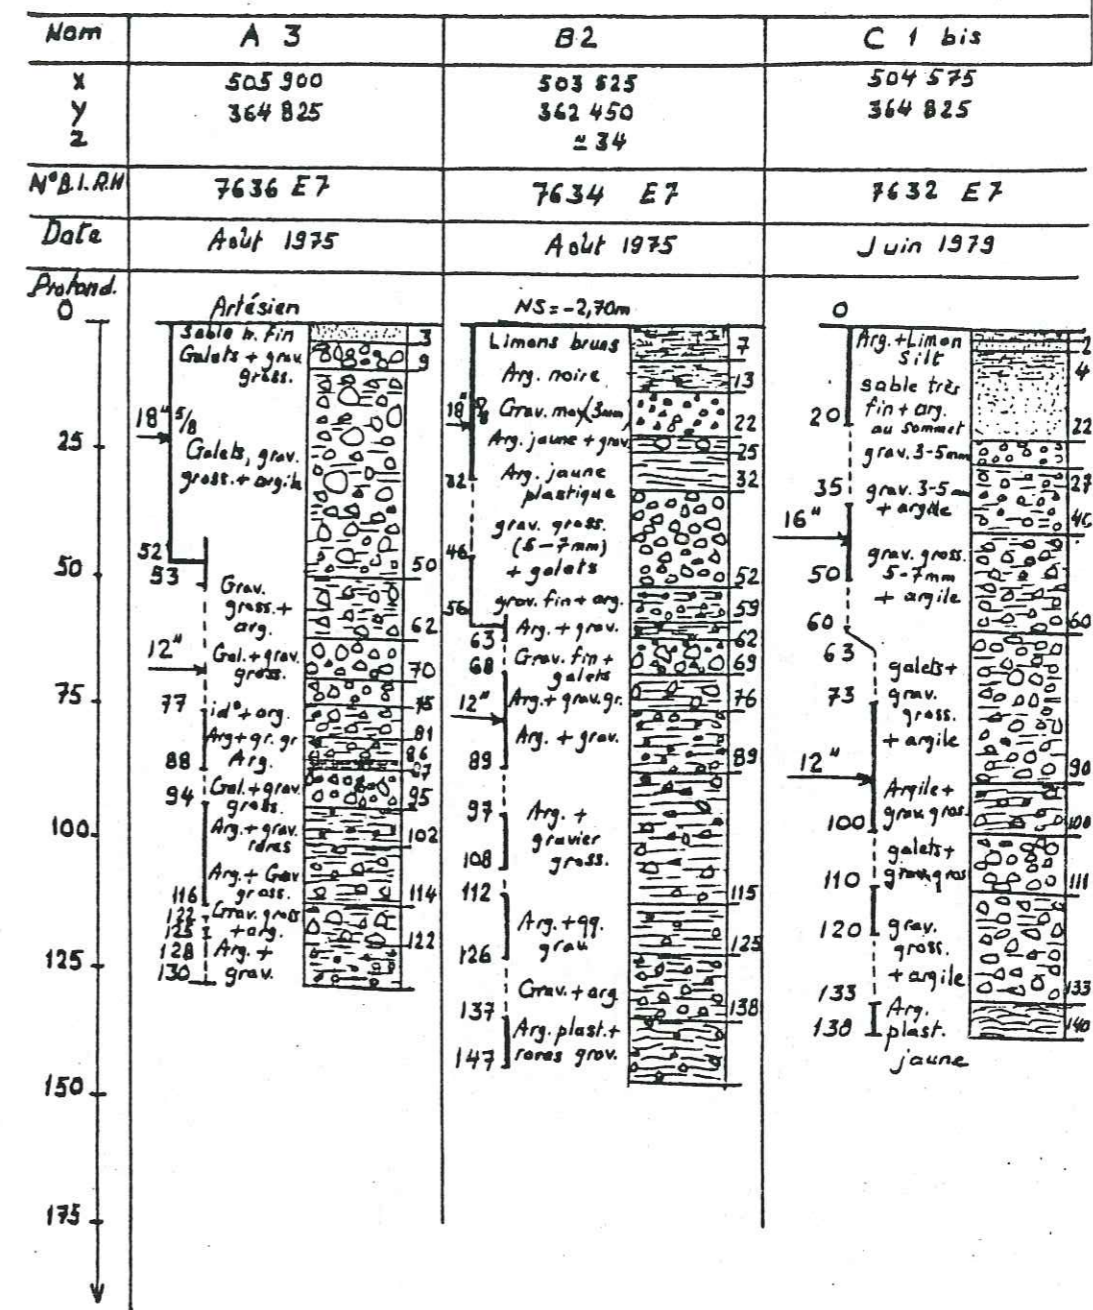 Nom
A 3
B2
C 1 bis
X
505 900
503 525
504 575
Y
364 825
362 450
364 825
Z
≃ 34
N° B.I.R.H
7636 E7
7634 E7
7632 E7
Date
Août 1975
Août 1975
Juin 1979
Protond.
0
25
50
75
100
125
150
175
Artésien
Sable tr. fin
3
Galets + grav.
gross.
9
18" 5/8
Galets, grav.
gross. + argile
52
53
50
Grav.
gross. +
arg.
62
12"
Gal. + grav.
gross.
70
77
id° + arg.
75
Arg + gr. gr
81
88
Arg.
86
87
94
Gal. + grav.
gross.
95
Arg. + grav.
rares
102
Arg. + Grav
gross.
116
114
122
Grav. gross
125
+ arg.
122
128
Arg. +
130
grav.
NS = -2,70m
Limons bruns
7
Arg. noire
13
18"
Grav. moy (3mm)
22
Arg. jaune + grav.
25
32
Arg. jaune
plastique
32
grav. gross.
(5-7mm)
46
+ galets
52
56
grav. fin + arg.
59
Arg. + grav.
62
63
68
Grav. fin +
galets
69
12"
Arg. + grav. gr.
76
Arg. + grav.
89
89
97
Arg. +
gravier
gross.
108
112
115
Arg. + qq.
grav.
126
125
Grav. + arg
137
138
Arg. plast. +
147
rares grav.
0
Arg. + Limon
Silt
2
4
sable très
20
fin + arg.
au sommet
22
grav. 3-5mm
27
35
grav. 3-5mm
+ argile
16"
grav. gross.
50
5-7mm
+ argile
60
60
63
galets +
73
grav.
gross.
+ argile
12"
90
Argile +
100
grav. gros
100
galets +
110
grav. gros
111
120
grav.
gross.
+ argile
133
133
Arg.
138
plast.
140
jaune